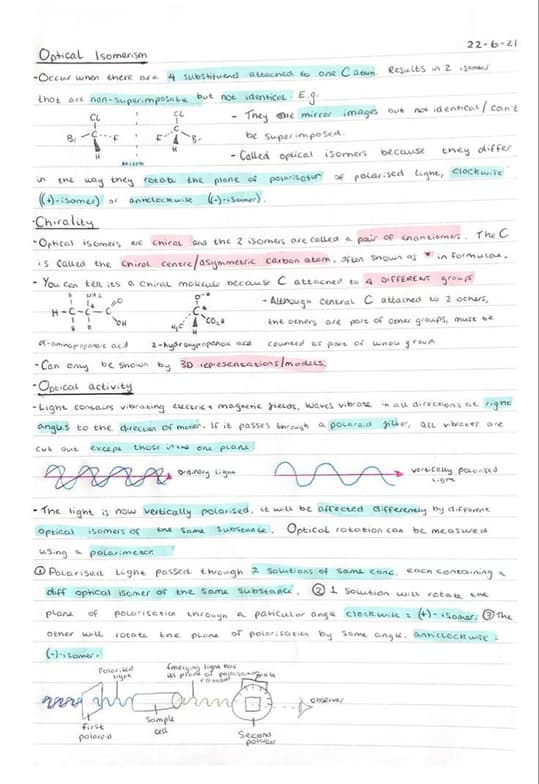 22-6-21
Optical Isomerism
-Occur when there are 4 substituents attached to one C atom. Results in 2 isomers
that are non-superimposable but not identical. E.g.
CL CL - They are mirror images but not identical/can't
Br C F F C Br be superimposed.
H H - Called optical isomers because they differ
mirror
in the way they rotate the plane of polarisation of polarised light, clockwise
((+)-isomer) or anticlockwise ((-)-isomer).
·Chirality
-Optical isomers are chiral and the 2 isomers are called a pair of enantiomers. The C
is called the chiral centre/asymmetric carbon atom, often shown as * in formulae.
- You can tell its a chiral molecule because C attached to 4 DIFFERENT groups
H NH2 O - Although central C attached to 2 others,
H-C-C-C C
OH H3C CO2H the others are part of other groups, must be
H H H
α-aminopropanoic acid 2-hydroxypropanoic acid counted as part of whole group.
- Can only be shown by 3D representations/models.
·Optical activity
-Light contains vibrating electric + magnetic fields, waves vibrate in all directions at right
angles to the direction of motion. If it passes through a polaroid filter, all vibrations are
cut out except those in the one plane
ordinary light vertically polarised
light
- The light is now vertically polarised, it will be affected differently by different
optical isomers of the same substance. Optical rotation can be measured
using a polarimeter.
① Polarised light passed through 2 solutions of same conc, each containing a
diff optical isomer of the same substance. ② 1 solution will rotate the
plane of polarisation through a paticular angle clockwise = (+)-isomer. ③ The
other will rotate the plane of polarisation by same angle, anticlockwise =
(-)-isomer.
Polarised light
Emerging light has its plane of polarisation rotated
observer
first polaroid
Sample cell
Second